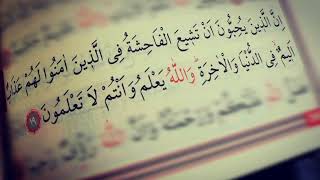 اِنَّ الَّذ۪ينَ يُحِبُّونَ اَنْ تَش۪يعَ الْفَاحِشَةُ فِي الَّذ۪ينَ اٰمَنُوا لَهُمْ عَذَابٌ
اَل۪يمٌ فِي الدُّنْيَا وَالْاٰخِرَةِ وَاللّٰهُ يَعْلَمُ وَاَنْتُمْ لَا تَعْلَمُونَ ١٩